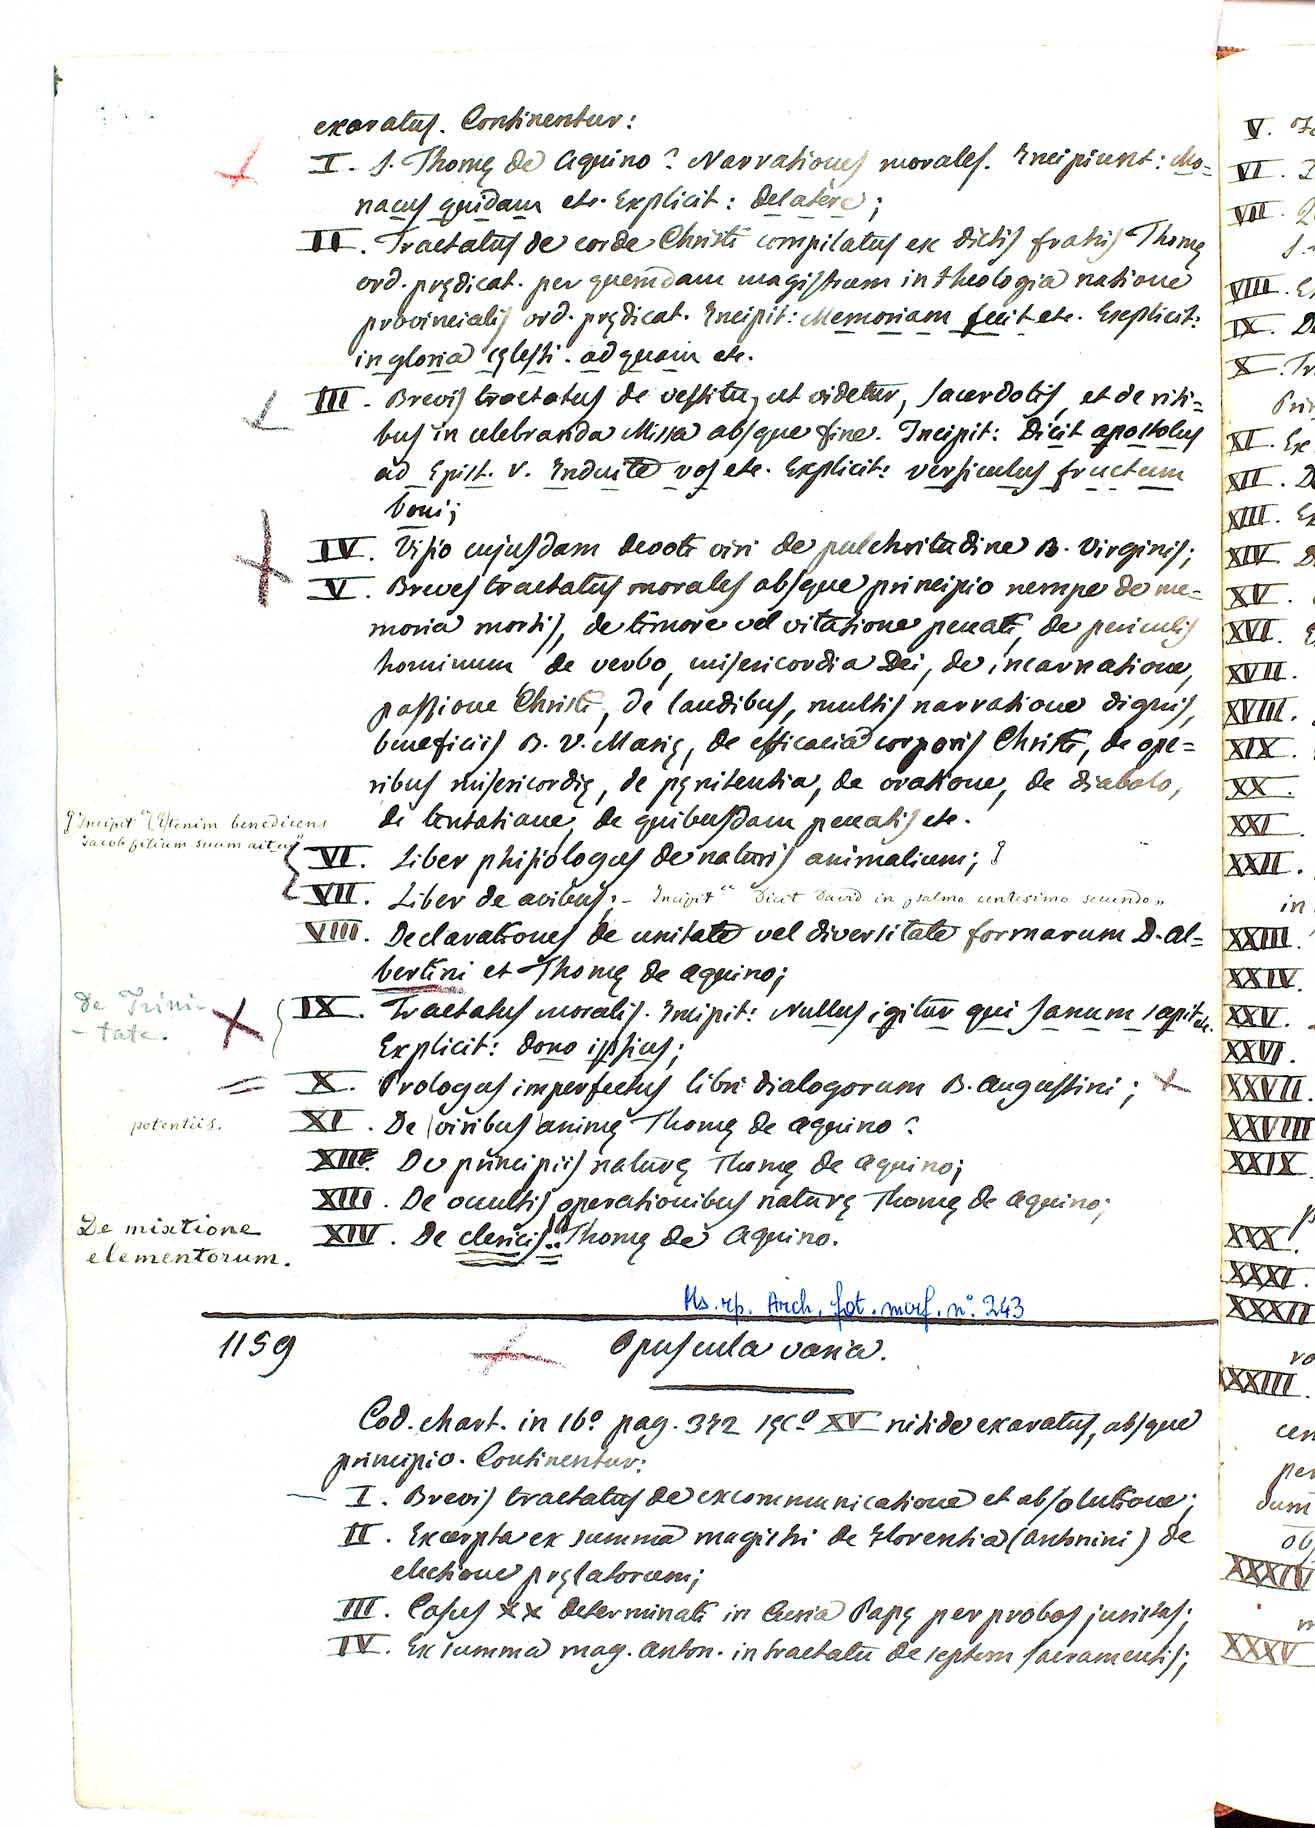 exaratus. Continentur:
I. S. Thomę de Aquino? Narrationes morales. Incipiunt: Mo=
nacus quidam etc. Explicit: delatere;
II. Tractatus de corde Christi compilatus ex dictis fratris Thomę
ord. prędicat. per quemdam magistrum in theologia natione
provincialis ord. prędicat. Incipit: Memoriam fecit etc. Explicit:
in gloria cęlesti. ad quam etc.
III. Brevis tractatus de vestitu, ut videtur, sacerdotis, et de riti=
bus in celebranda Missa absque fine. Incipit: Dicit apostolus
ad Epist. V. Induite vos etc. Explicit: versiculus fructum
boni;
IV. Visio cujusdam devoti viri de pulchritudine B. Virginis;
V. Breves tractatus morales absque principio nempe de me=
moria mortis, de timore vel vitatione peccati, de periculis
hominum de verbo, misericordia Dei, de incarnatione,
passione Christi, de laudibus, multis narratione dignis,
beneficiis B. V. Marię, de efficacia corporis Christi, de ope=
ribus misericordię, de pęnitentia, de oratione, de diabolo,
de tentatione, de quibusdam peccatis etc.
Incipit "Etenim benedicens
Jacob filium suum ait"
VI. Liber phisiologus de naturis animalium;
VII. Liber de avibus; - Incipit "Dicit David in psalmo centesimo secundo"
VIII. Declarationes de unitate vel diversitate formarum D. Al=
bertini et Thomę de Aquino;
De Trini-
-tate.
IX. Tractatus moralis. Incipit: Nullus igitur qui sanum sapit etc.
Explicit: dono ipsius;
X. Prologus imperfectus libri dialogorum B. Augustini;
potentiis.
XI. De (viribus) animę Thomę de Aquino?
XII. De principiis naturę Thomę de Aquino;
XIII. De occultis operationibus naturę Thomę de Aquino;
De mixtione
elementorum.
XIV. De clericis Thomę de Aquino.
Ms. rip. Arch. fot. mirf. n° 243
1159
Opuscula varia.
Cod. chart. in 16° pag. 372 sęc° XV nitide exaratus, absque
principio. Continentur:
I. Brevis tractatus de excommunicatione et absolutione;
II. Excerpta ex summa magistri de Florentia (Antonini) de
electione pręlatorum;
III. Casus XX determinati in Curia Papę per probos juristas;
IV. Ex summa mag. Anton. in tractatu de septem sacramentis;
V.
VI.
VII.
VIII.
IX.
X.
XI. Ex
XII.
XIII.
XIV.
XV.
XVI.
XVII.
XVIII.
XIX.
XX.
XXI.
XXII.
in
XXIII.
XXIV.
XXV.
XXVI.
XXVII.
XXVIII
XXIX.
XXX.
XXXI.
XXXII
XXXIII.
XXXIV
XXXV